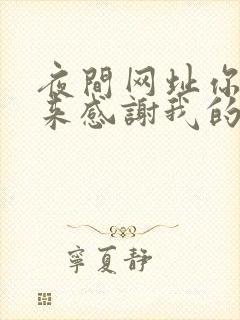 夜間网址你
来感謝我的
寧夏静